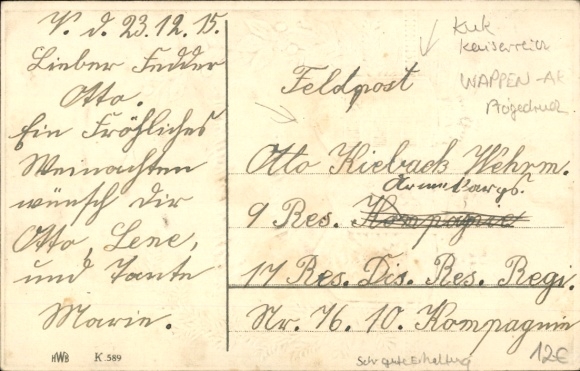 V. d. 23.12.15.
Lieber Fedder
Otto.
Ein Fröhliches
Weinachten
wünsch dir
Otto, Lene,
und Tante
Marie.
HWB K.589
KuK
Kaiserreich
WAPPEN-AK
Feldpost
Otto Kieback Wehrm.
9 Res. Kompagnie
17 Res. Dis. Res. Regi.
Nr. 76. 10. Kompagnie
Sehr gute Erhaltung
12€